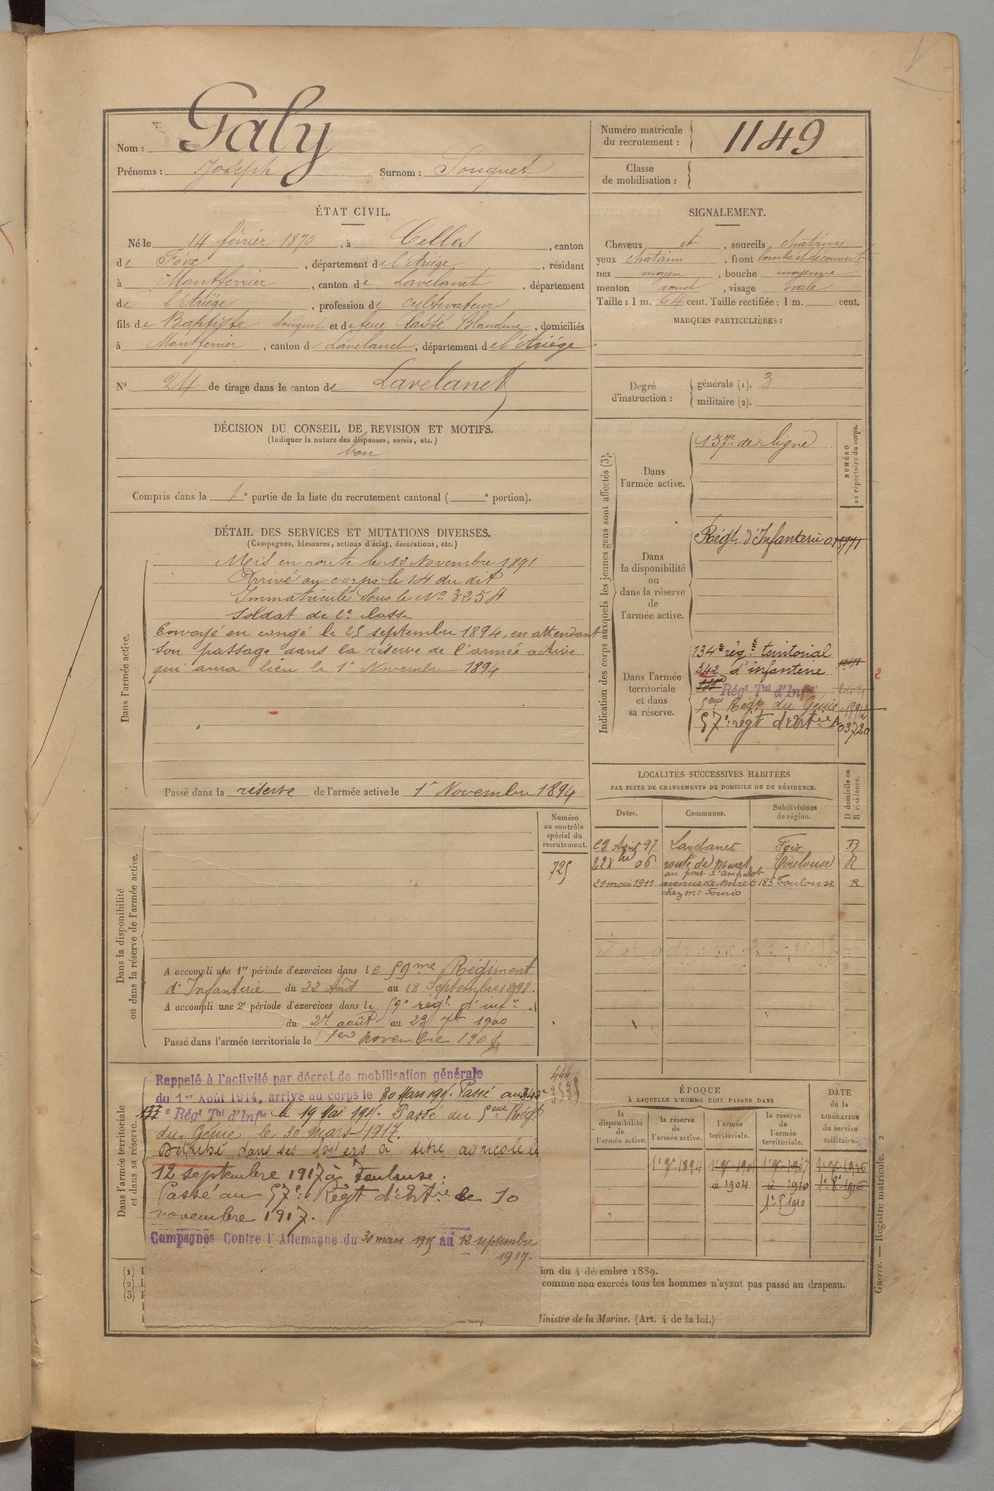 Nom : Galy
Prénoms : Joseph Surnom : Souquet
Numéro matricule du recrutement : 1149
Classe de mobilisation :
ÉTAT CIVIL.
Né le 14 février 1870, à Celles, canton
de Foix, département de l'Ariège, résidant
à Montferrier, canton de Lavelanet, département
de l'Ariège, profession de cultivateur
fils de Baptiste Souquet et de feue Blandine, domiciliés
à Montferrier, canton de Lavelanet, département de l'Ariège
N° 24 de tirage dans le canton de Lavelanet
SIGNALEMENT.
Cheveux et, sourcils chatains
yeux chatains, front bombé et découvert
nez moyen, bouche moyenne
menton rond, visage ovale
Taille : 1 m. 64 cent. Taille rectifiée : 1 m. cent.
MARQUES PARTICULIÈRES :
Degré d'instruction : générale (1). 3
militaire (2).
DÉCISION DU CONSEIL DE REVISION ET MOTIFS.
(Indiquer la nature des dispenses, sursis, etc.)
bon
Compris dans la 1e partie de la liste du recrutement cantonal ( e portion).
DÉTAIL DES SERVICES ET MUTATIONS DIVERSES.
(Campagnes, blessures, actions d'éclat, décorations, etc.)
Dans l'armée active.
Mis en route le 13 Novembre 1891
Arrivé au corps le 14 du dit
Immatriculé sous le No 3254
Soldat de 2e classe
Envoyé en congé le 25 septembre 1894, en attendant
son passage dans la réserve de l'armée active
qui aura lieu le 1er Novembre 1894
Passé dans la réserve de l'armée active le 1er Novembre 1894
Indication des corps auxquels les jeunes gens sont affectés (3).
NUMÉRO au répertoire du corps.
Dans l'armée active.
de ligne
Dans la disponibilité ou dans la réserve de l'armée active.
Régt. d'Infanterie
Dans l'armée territoriale et dans sa réserve.
134e régt territorial
342 d'infanterie
Régt Tal d'Infie
5eme Régt du Génie
57e régt d'Artie 03720
2
LOCALITÉS SUCCESSIVES HABITÉES
PAR SUITE DE CHANGEMENTS DE DOMICILE OU DE RÉSIDENCE.
Dates. Communes. Subdivisions de région. D domicile ou R résidence.
Août 97 Lavelanet Foix D
06 route de Muret Toulouse R
21 mai 1911 avenue de Muret 185 Toulouse R
Dans la disponibilité ou dans la réserve de l'armée active.
Numéro au contrôle spécial du recrutement.
725
A accompli une 1re période d'exercices dans le 59me Régiment
d'Infanterie du 22 Août au 18 Septembre 1898.
A accompli une 2e période d'exercices dans le 59e régt d'infie
du 27 août au 23 7bre 1900
Passé dans l'armée territoriale le 1er novembre 1904
Dans l'armée territoriale et dans sa réserve.
Rappelé à l'activité par décret de mobilisation générale
du 1er Août 1914, arrivé au corps le 30 Mars 1915. Passé au
Régt Tal d'Infie le 19 Mai 1915. Passé au 5eme Régt
du Génie le 30 mars 1917.
Détaché dans ses foyers à titre agricole le
12 septembre 1917 à Toulouse.
Passé au 57e Régt d'Artie le 10
novembre 1917.
Campagnes Contre l'Allemagne du 30 mars 1915 au 12 septembre
1917.
ÉPOQUE
À LAQUELLE L'HOMME DOIT PASSER DANS
la disponibilité de l'armée active. la réserve de l'armée active. l'armée territoriale. la réserve de l'armée territoriale.
DATE de la LIBÉRATION du service militaire.
1er 9bre 1894
1904
1910
(1)
(2)
(3)
ion du 4 décembre 1889.
comme non exercés tous les hommes n'ayant pas passé au drapeau.
Ministre de la Marine. (Art. 4 de la loi.)
Guerre. — Registre matricule. 2